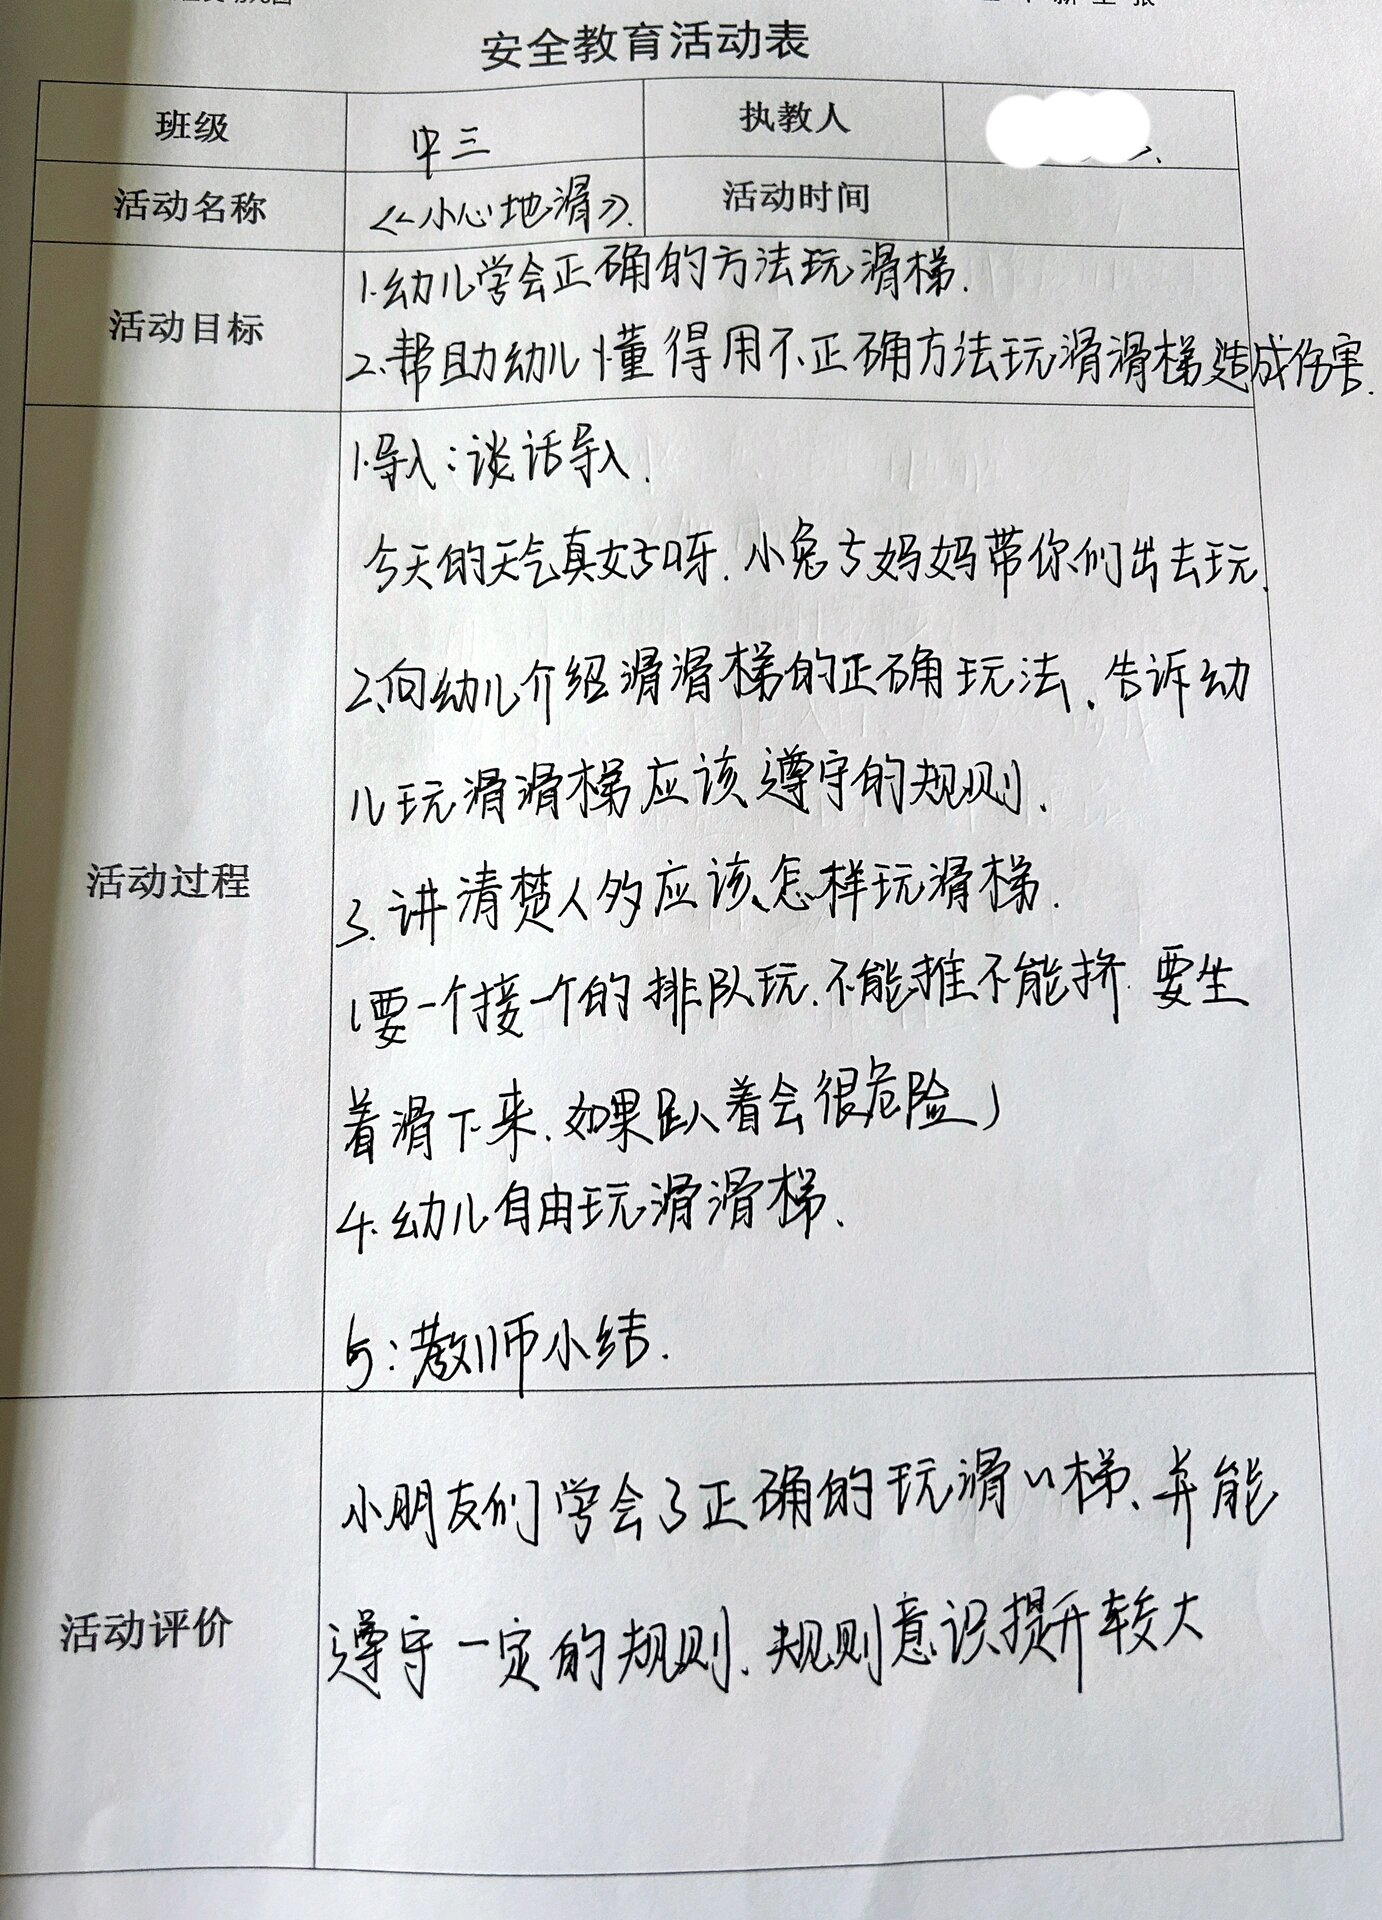 安全教育活动表
班级 中三 执教人
活动名称 《小心地滑》. 活动时间
活动目标
1.幼儿学会正确的方法玩滑梯.
2.帮助幼儿懂得用不正确方法玩滑滑梯造成伤害.
活动过程
1.导入:谈话导入.
今天的天气真好呀.小兔子妈妈带你们出去玩.
2.向幼儿介绍滑滑梯的正确玩法、告诉幼
儿玩滑滑梯应该遵守的规则.
3.讲清楚人多应该怎样玩滑梯.
(要一个接一个的排队玩.不能推不能挤.要坐
着滑下来.如果趴着会很危险)
4.幼儿自由玩滑滑梯.
5:教师小结.
活动评价
小朋友们学会了正确的玩滑〃梯、并能
遵守一定的规则.规则意识提升较大